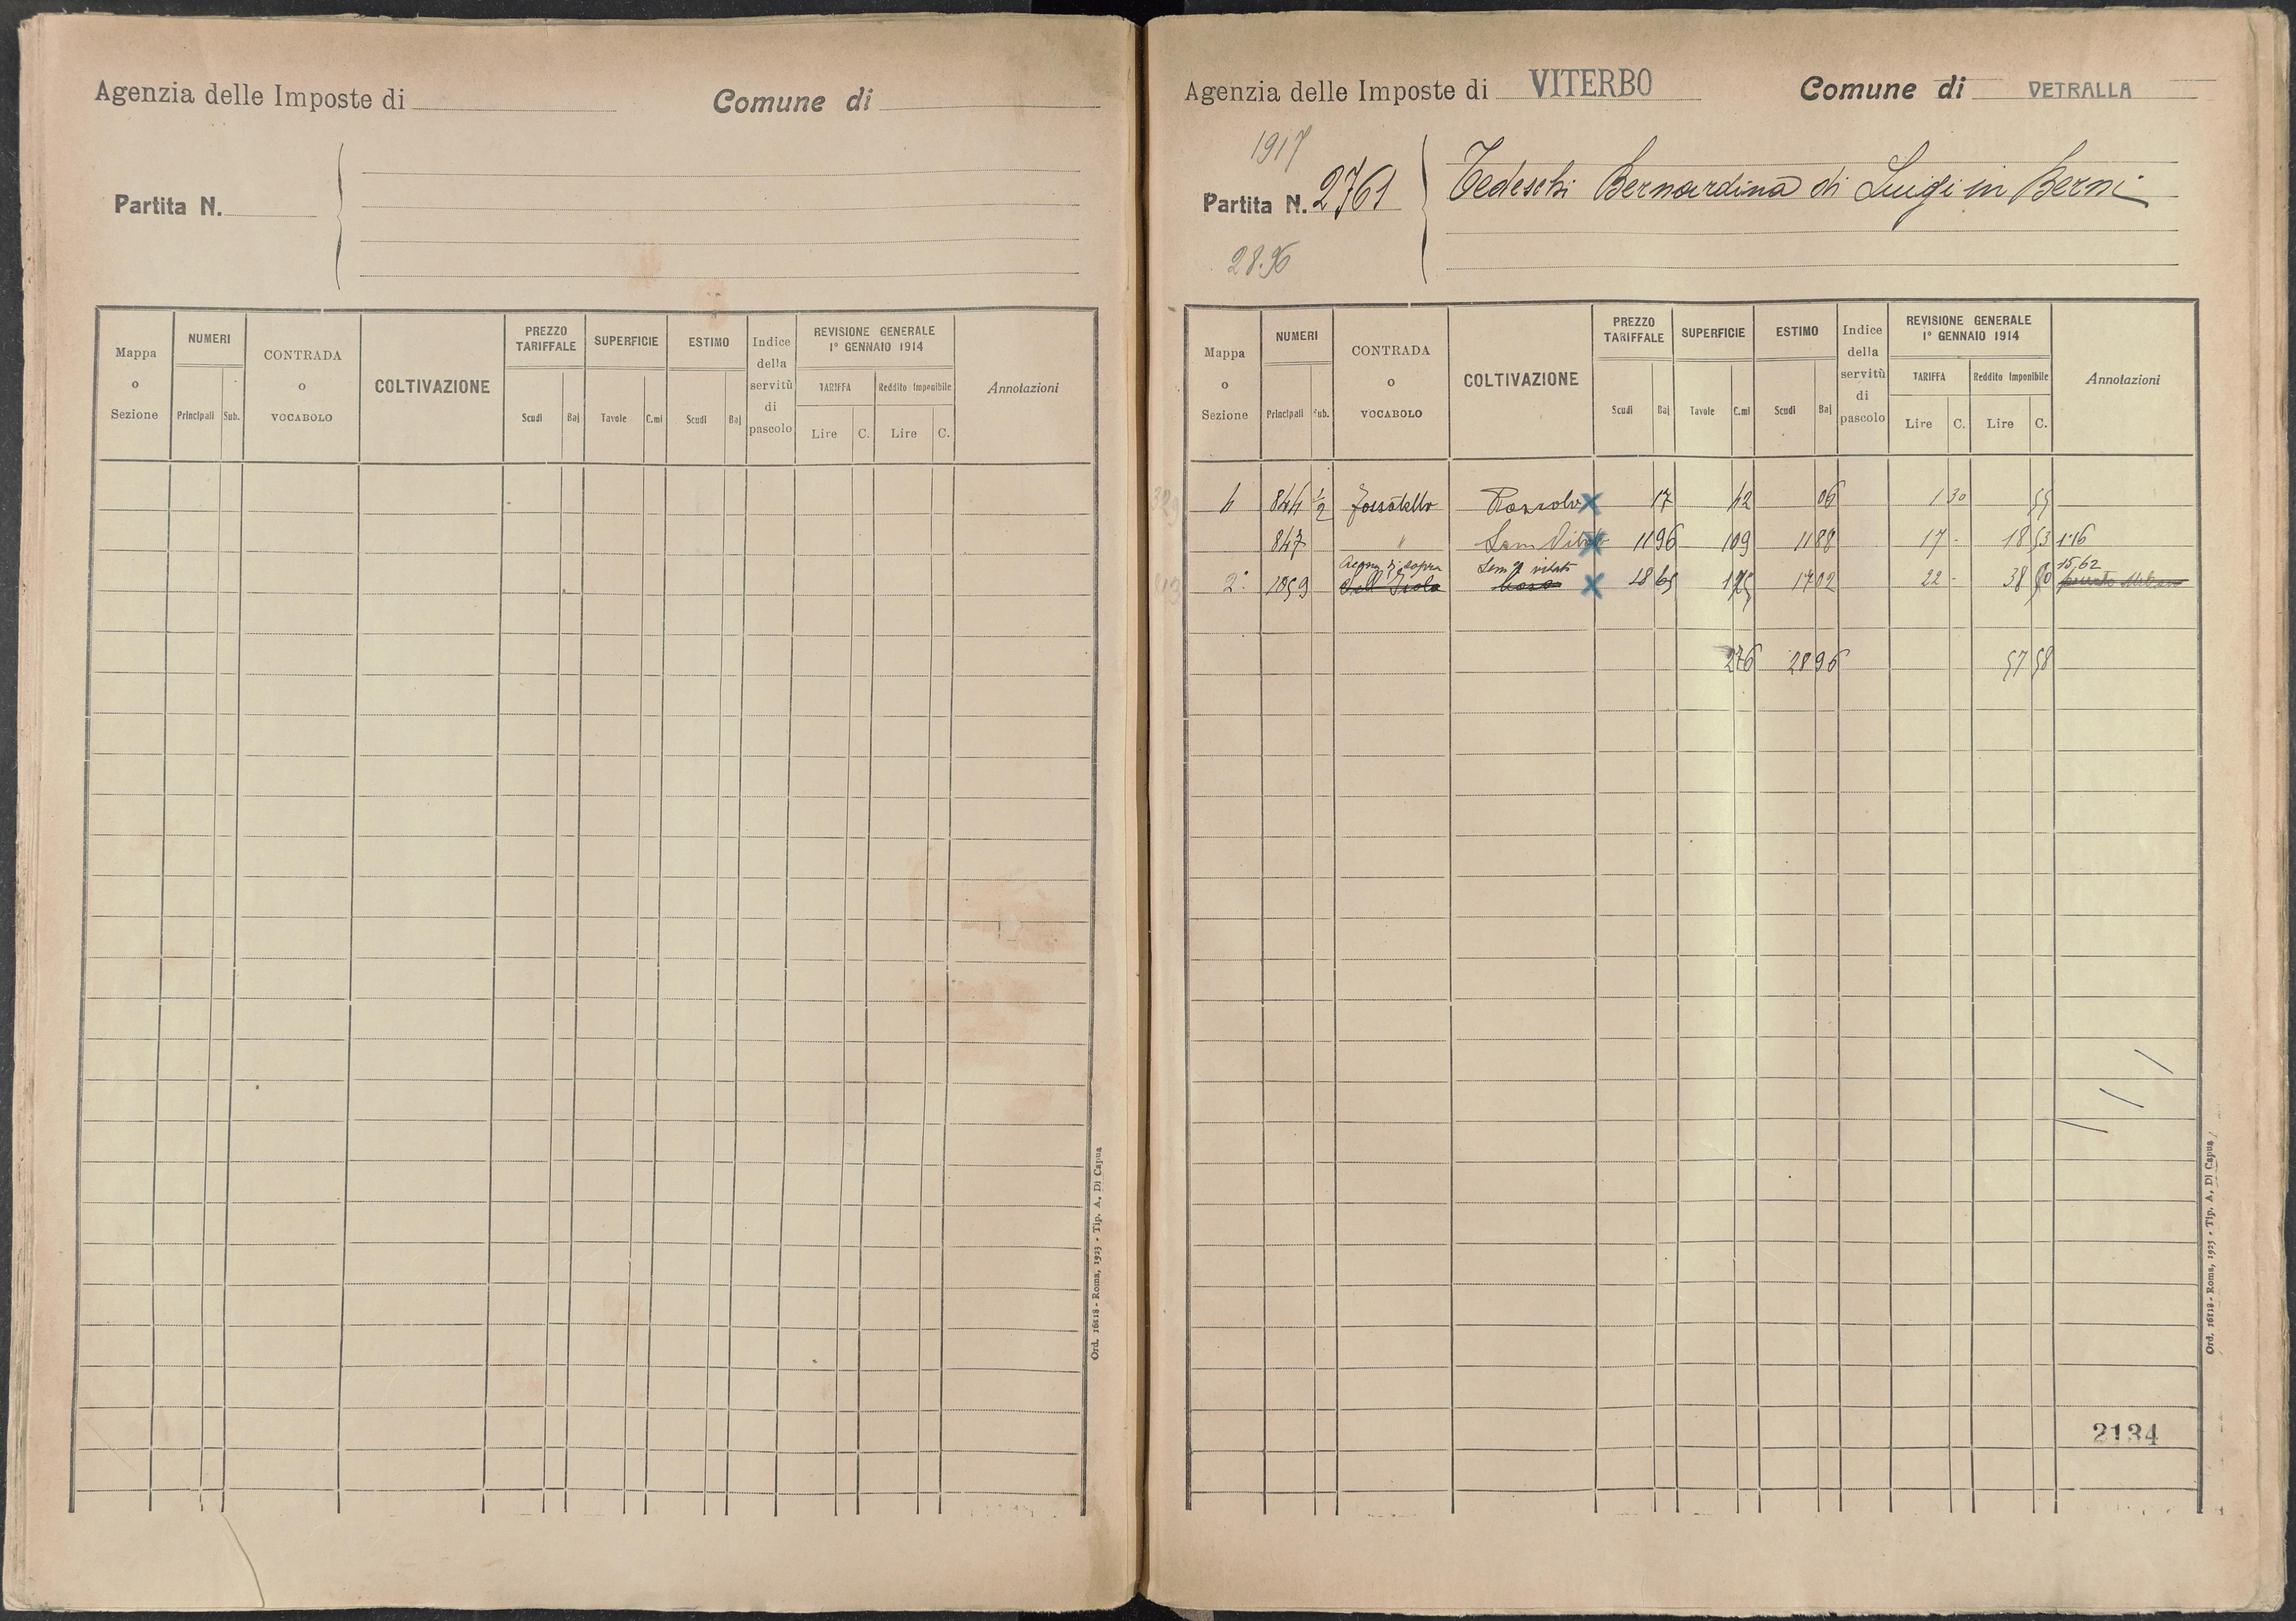 Agenzia delle Imposte di
Comune di
Partita N.
Mappa o Sezione
NUMERI
Principali Sub.
CONTRADA o VOCABOLO
COLTIVAZIONE
PREZZO TARIFFALE
Scudi Baj
SUPERFICIE
Tavole C.mi
ESTIMO
Scudi Baj
Indice della servitù di pascolo
REVISIONE GENERALE
1° GENNAIO 1914
TARIFFA Reddito Imponibile
Lire C. Lire C.
Annotazioni
Ord. 16118 - Roma, 1923 - Tip. A. Di Capua
Agenzia delle Imposte di VITERBO
Comune di VETRALLA
1917
Partita N. 2761
Tedeschi Bernardina di Luigi in Berni
28.96
Mappa o Sezione
NUMERI
Principali Sub.
CONTRADA o VOCABOLO
COLTIVAZIONE
PREZZO TARIFFALE
Scudi Baj
SUPERFICIE
Tavole C.mi
ESTIMO
Scudi Baj
Indice della servitù di pascolo
REVISIONE GENERALE
1° GENNAIO 1914
TARIFFA Reddito Imponibile
Lire C. Lire C.
Annotazioni
844 1/2 Fossatello 17 42 06 1 30 55
847 " Sem Vitato 11 96 1 09 11 88 17 - 18 53
Acqua di sopra Sem vitato 15,62
2° 1059 18 65 22 - 38
276 28 96 57 58
2134
Ord. 16118 - Roma, 1923 - Tip. A. Di Capua